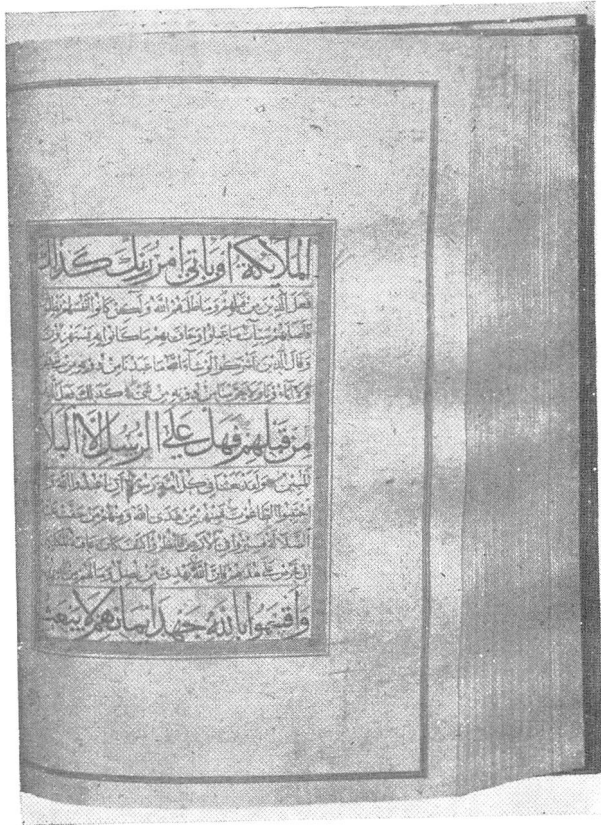 الملائكة او ياتي امر ربك كذلك
فعل الذين من قبلهم وما ظلمهم الله ولكن كانوا انفسهم
فاصابهم سيئات ما عملوا وحاق بهم ما كانوا به
وقال الذين اشركوا لو شاء الله ما عبدنا من دونه من
ولا آباؤنا ولا حرمنا من دونه من شيء كذلك فعل
من قبلهم فهل على الرسل الا البلا
المبين ولقد بعثنا في كل امة رسولا ان اعبدوا الله و
اجتنبوا الطاغوت فمنهم من هدى الله ومنهم من حقت
الضلالة فسيروا في الارض فانظروا كيف كان عاقبة
ان تحرص على هداهم فان الله لا يهدي من يضل وما لهم من
واقسموا بالله جهد ايمانهم لا يبعث